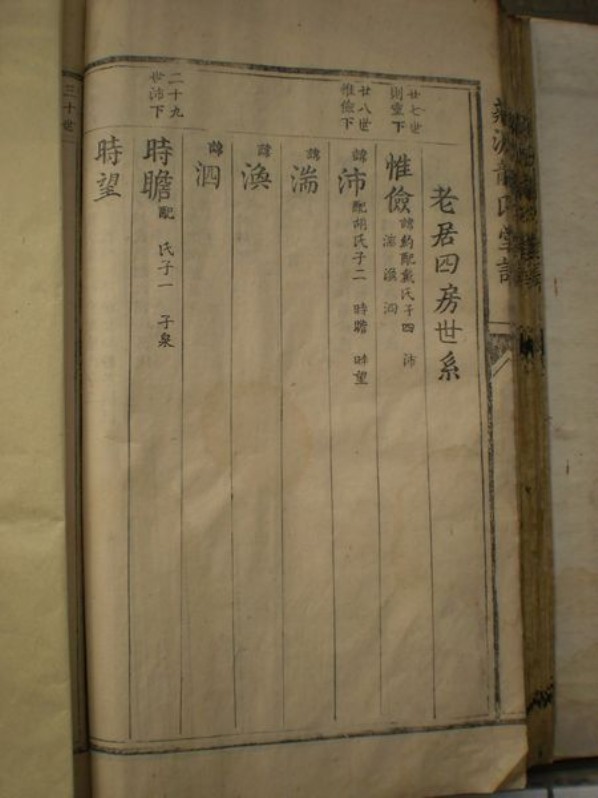 老居四房世系
廿七世
則童下
惟儉 諱約配戴氏子四 沛
湍 渙 泗
廿八世
惟儉下
諱沛 配胡氏子二 時瞻 時望
諱湍
諱渙
諱泗
二十九
世沛下
時瞻 配 氏子一 子泉
時望
三十世